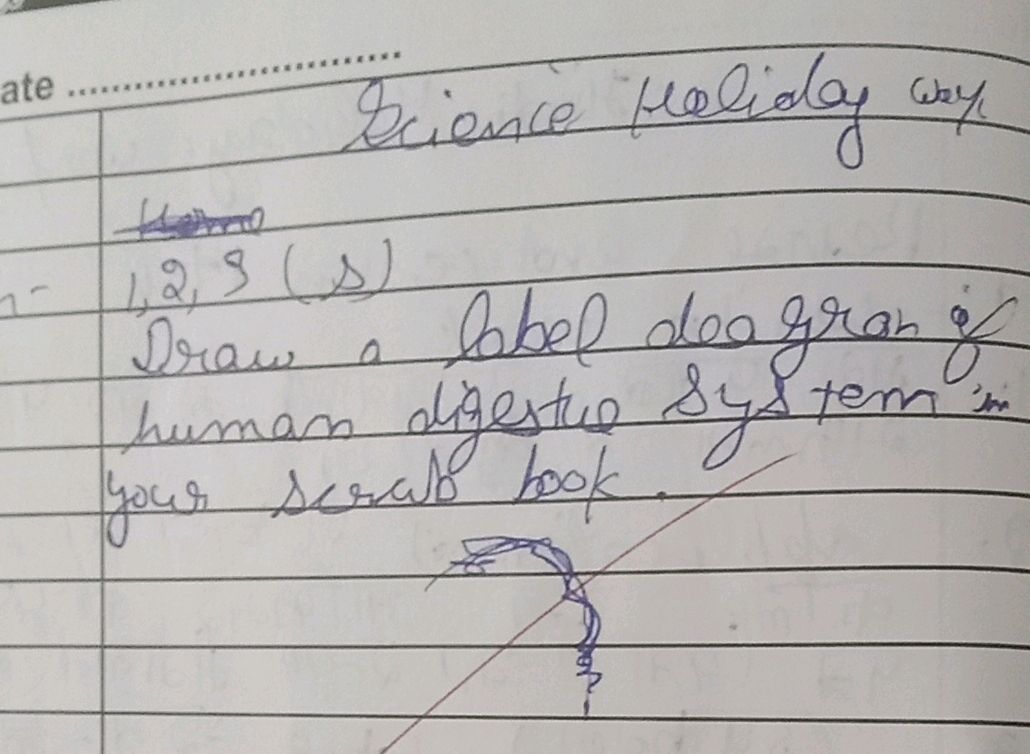 ate ........................
Science Holiday
n-
1, 2, 3 (s)
Draw a label deagran of
human digestive system in
your scrab book.